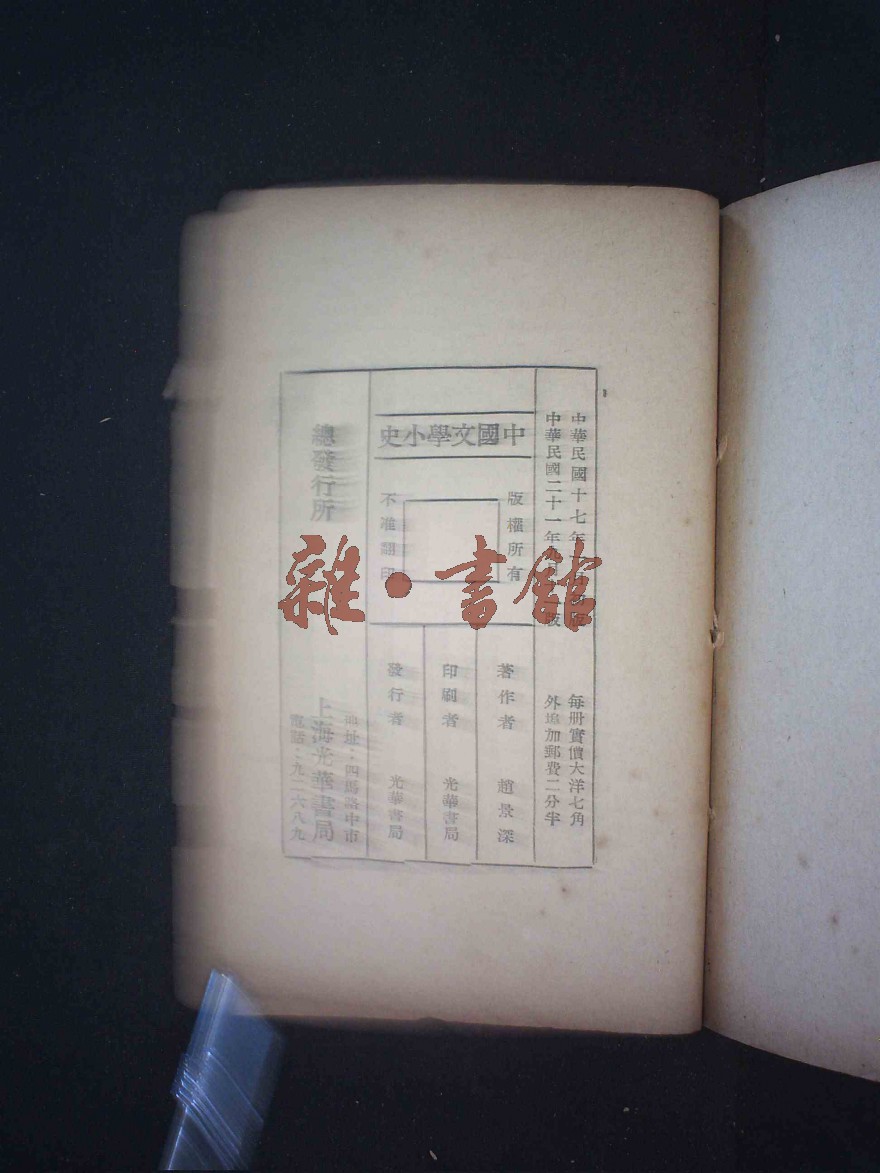 中華民國十七年
中華民國二十一年
版
每册實價大洋七角
外埠加郵費二分半
中國文學小史
版權所有
不准翻印
著作者 趙景深
印刷者 光華書局
發行者 光華書局
總發行所
上海光華書局
地址：四馬路中市
電話：九一六八九
雜·書館